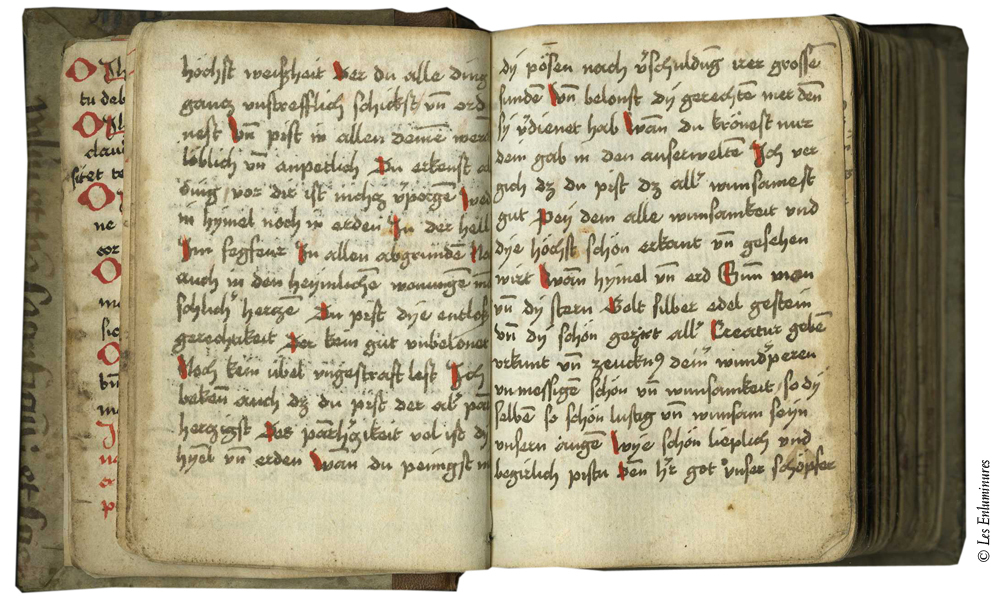 höchst weißheit Der du alle ding
gancz vnstrefflich schickst vn̄ ord
nest Vn̄ pist in allen deinē werc
löblich vn̄ anpetlich Du erkenst al
ding vor dir ist nichcz v̓porgē wed
in hymel noch in erden In der hell
Im fegfeur In allen abgrundē No
auch in den heymlichē wonungē m
schlichr̓ herczē Du pist dye entlos
gerechtikeit Der kein güt vnbelonet
Noch kein übel vngestraft lest Ich
bekēn auch dz du pist der alr̓ par
herczigst Des parh̓czikeit vol ist dy
hyēl vn̄ erden Wan du peinigst
dy pösen nach v̓schuldūg irer grossē
sunden Vn̄ belonst dy gerechtē mer dēn
sy v̓dienet hab Wan du krönest nur
dein gab in den auserweltē Ich ver
gich dz du pist dz allr̓ wunsamest
gut Pey dem alle wunsamkeit vnd
dye höchst schön erkant vn̄ gesehen
wirt Wan hymel vn̄ erd Sunn mon
vn̄ dy stern Golt silber edel gestein
vn̄ dy schön geczirt allr̓ Creatur gebē
vrkunt vn̄ zeuckn9 deinr̓ wund̓peren
vnmessigē schön vn̄ wunsamkeit so dy
selben so schön lustig vn̄ wunsam seyn
vnsern augē Wye schön lieplich vnd
begirlich pistu dēn h̓r got vnser schöpfer
tu deb
claui
sitet te
ne
cor
© Les Enluminures